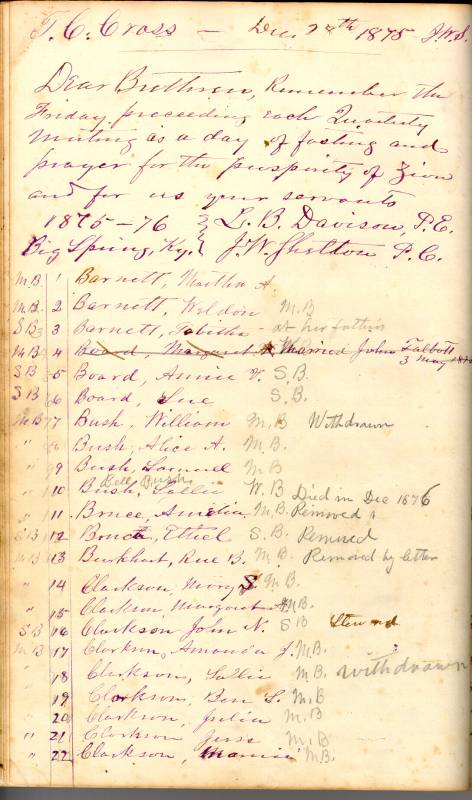 T. C. Cross — Dec. 28th 1875 J.W.S.
Dear Brethren, Remember the
Friday preceeding each Quarterly
meeting as a day of fasting and
prayer for the prosperity of Zion
and for us your servants
1875-76 L. B. Davison, P.E.
Big Spring, Ky. J. W. Shelton P.C.
M.B 1 Barnett, Martha A
M.B. 2 Barnett, Weldon M.B
S.B 3 Barnett, Tabitha - at her fathers
M.B 4 Board, Margaret Married John Talbott
3 May
S.B 5 Board, Annie V. S.B.
S.B 6 Board, Sue S.B.
M.B 7 Bush, William M.B Withdrawn
" 8 Bush, Alice A. M.B.
" 9 Bush, Samuel M B
Bell Bush
" 10 Bush, Sallie W.B Died in Dec 1876
" 11 Bruce, Amelia M.B. Removed
S.B 12 Bruce, Ethel S.B. Removed
M.B 13 Burkhart, Rue B. M.B. Removed by letter
" 14 Clarkson, Mary S M.B.
" 15 Clarkson, Margaret A M.B.
S B 16 Clarkson John N. S B Steward
M.B. 17 Clarkson, Amanda J. M.B.
" 18 Clarkson, Sallie M.B. withdrawn
" 19 Clarkson, Ben S. M.B
" 20 Clarkson, Julia M.B
" 21 Clarkson Jesse M.B
" 22 Clarkson, M.B.